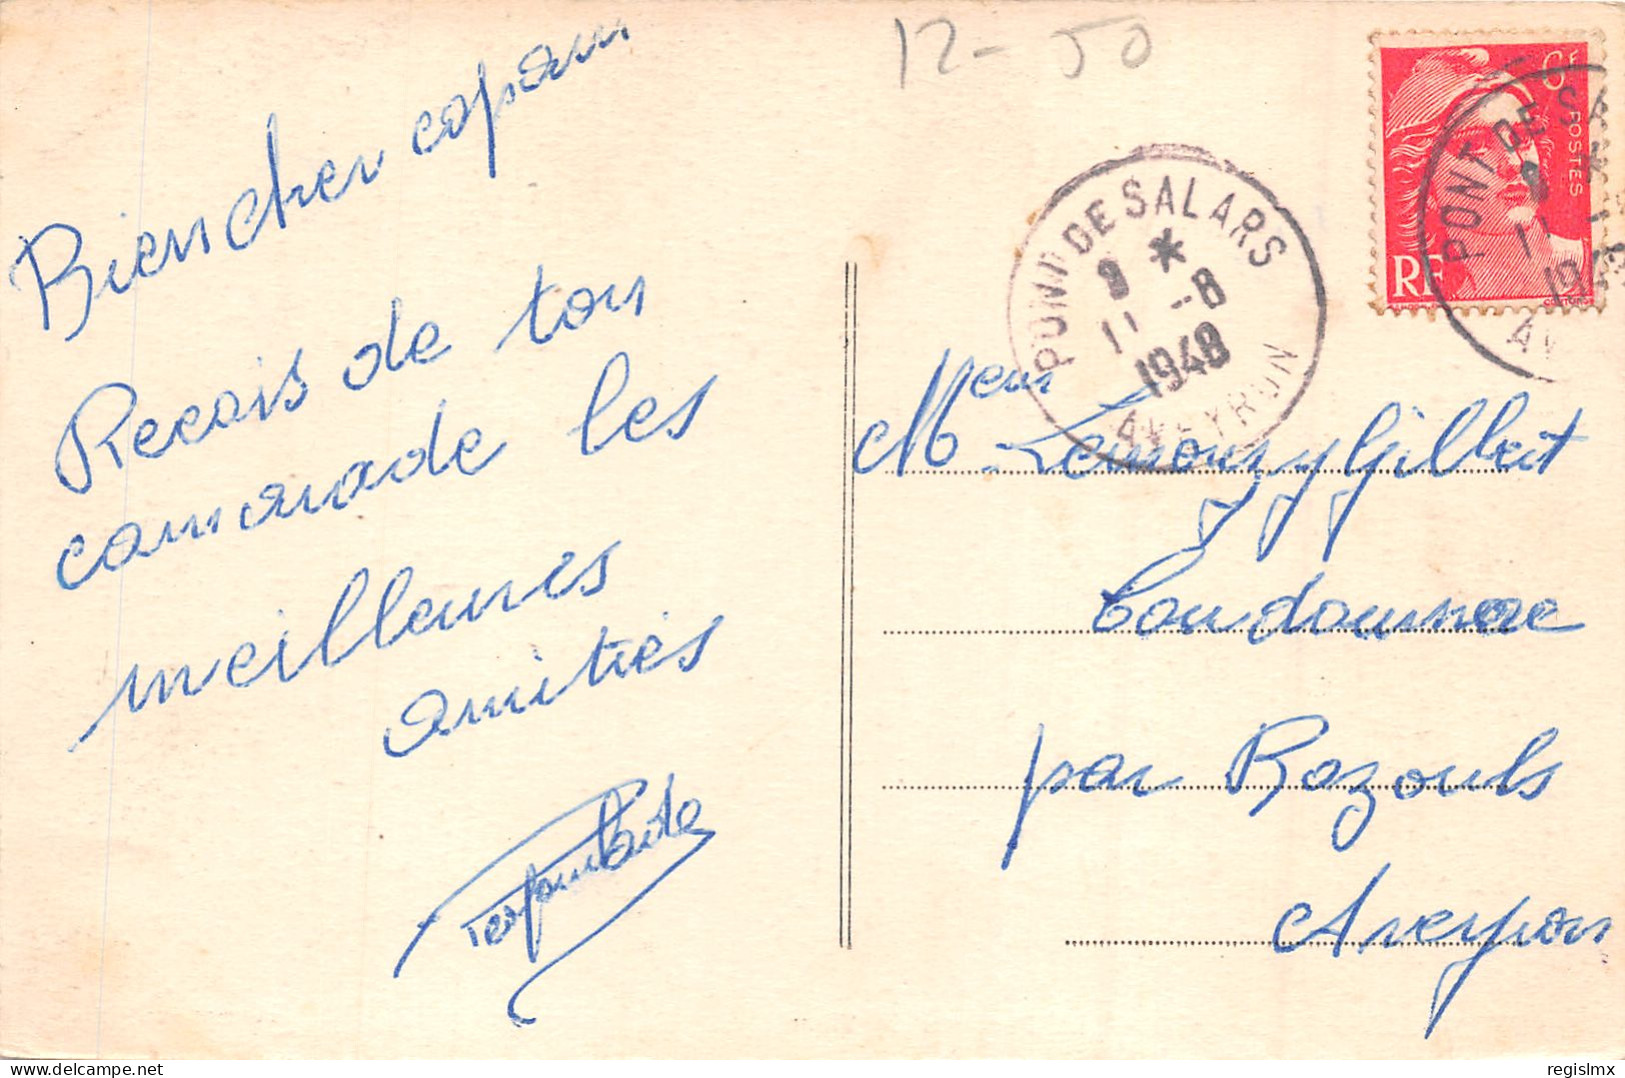 12-50
Bien cher copain
Recois de ton
camarade les
meilleures
amitiés
PONT DE SALARS
*
11 -8
1948
AVEYRON
6F
POSTES
RF
PONT DE SA
*
11
194
AV
Meur Lemouzy Gilbert
par Razouls
Aveyron
regislmx
delcampe.net